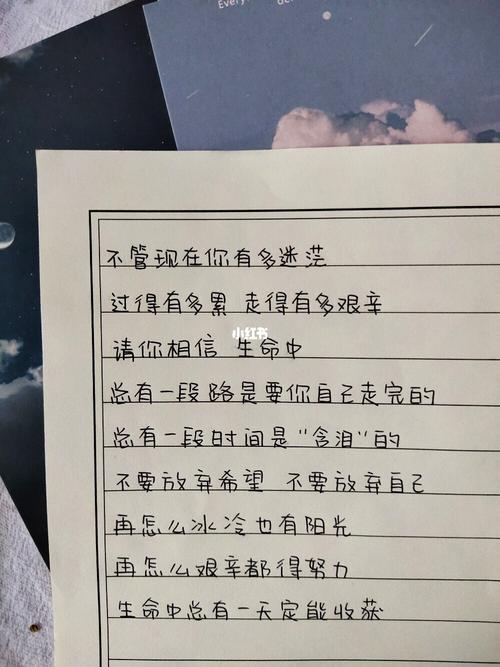 Every
不管现在你有多迷茫
过得有多累 走得有多艰辛
小红书
请你相信 生命中
总有一段路是要你自己走完的
总有一段时间是“含泪”的
不要放弃希望 不要放弃自己
再怎么冰冷也有阳光
再怎么艰辛都得努力
生命中总有一天定能收获